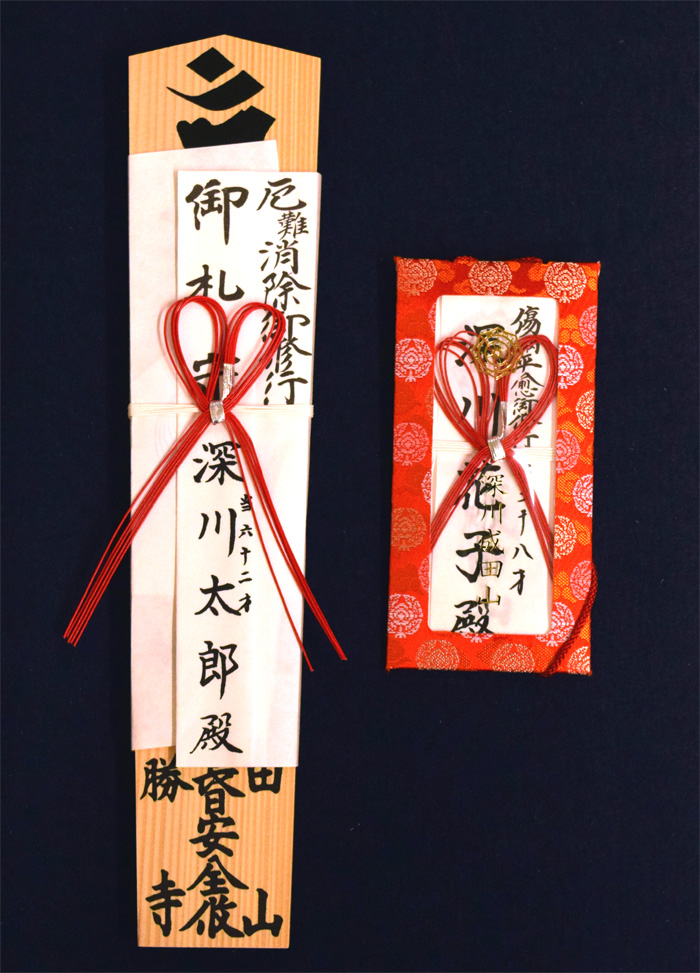 厄難消除御修行
御札守
当六十二才
深川太郎殿
田山
安全攸
勝寺
傷病平愈御修行
二十八才
深川花子殿
深川成田山